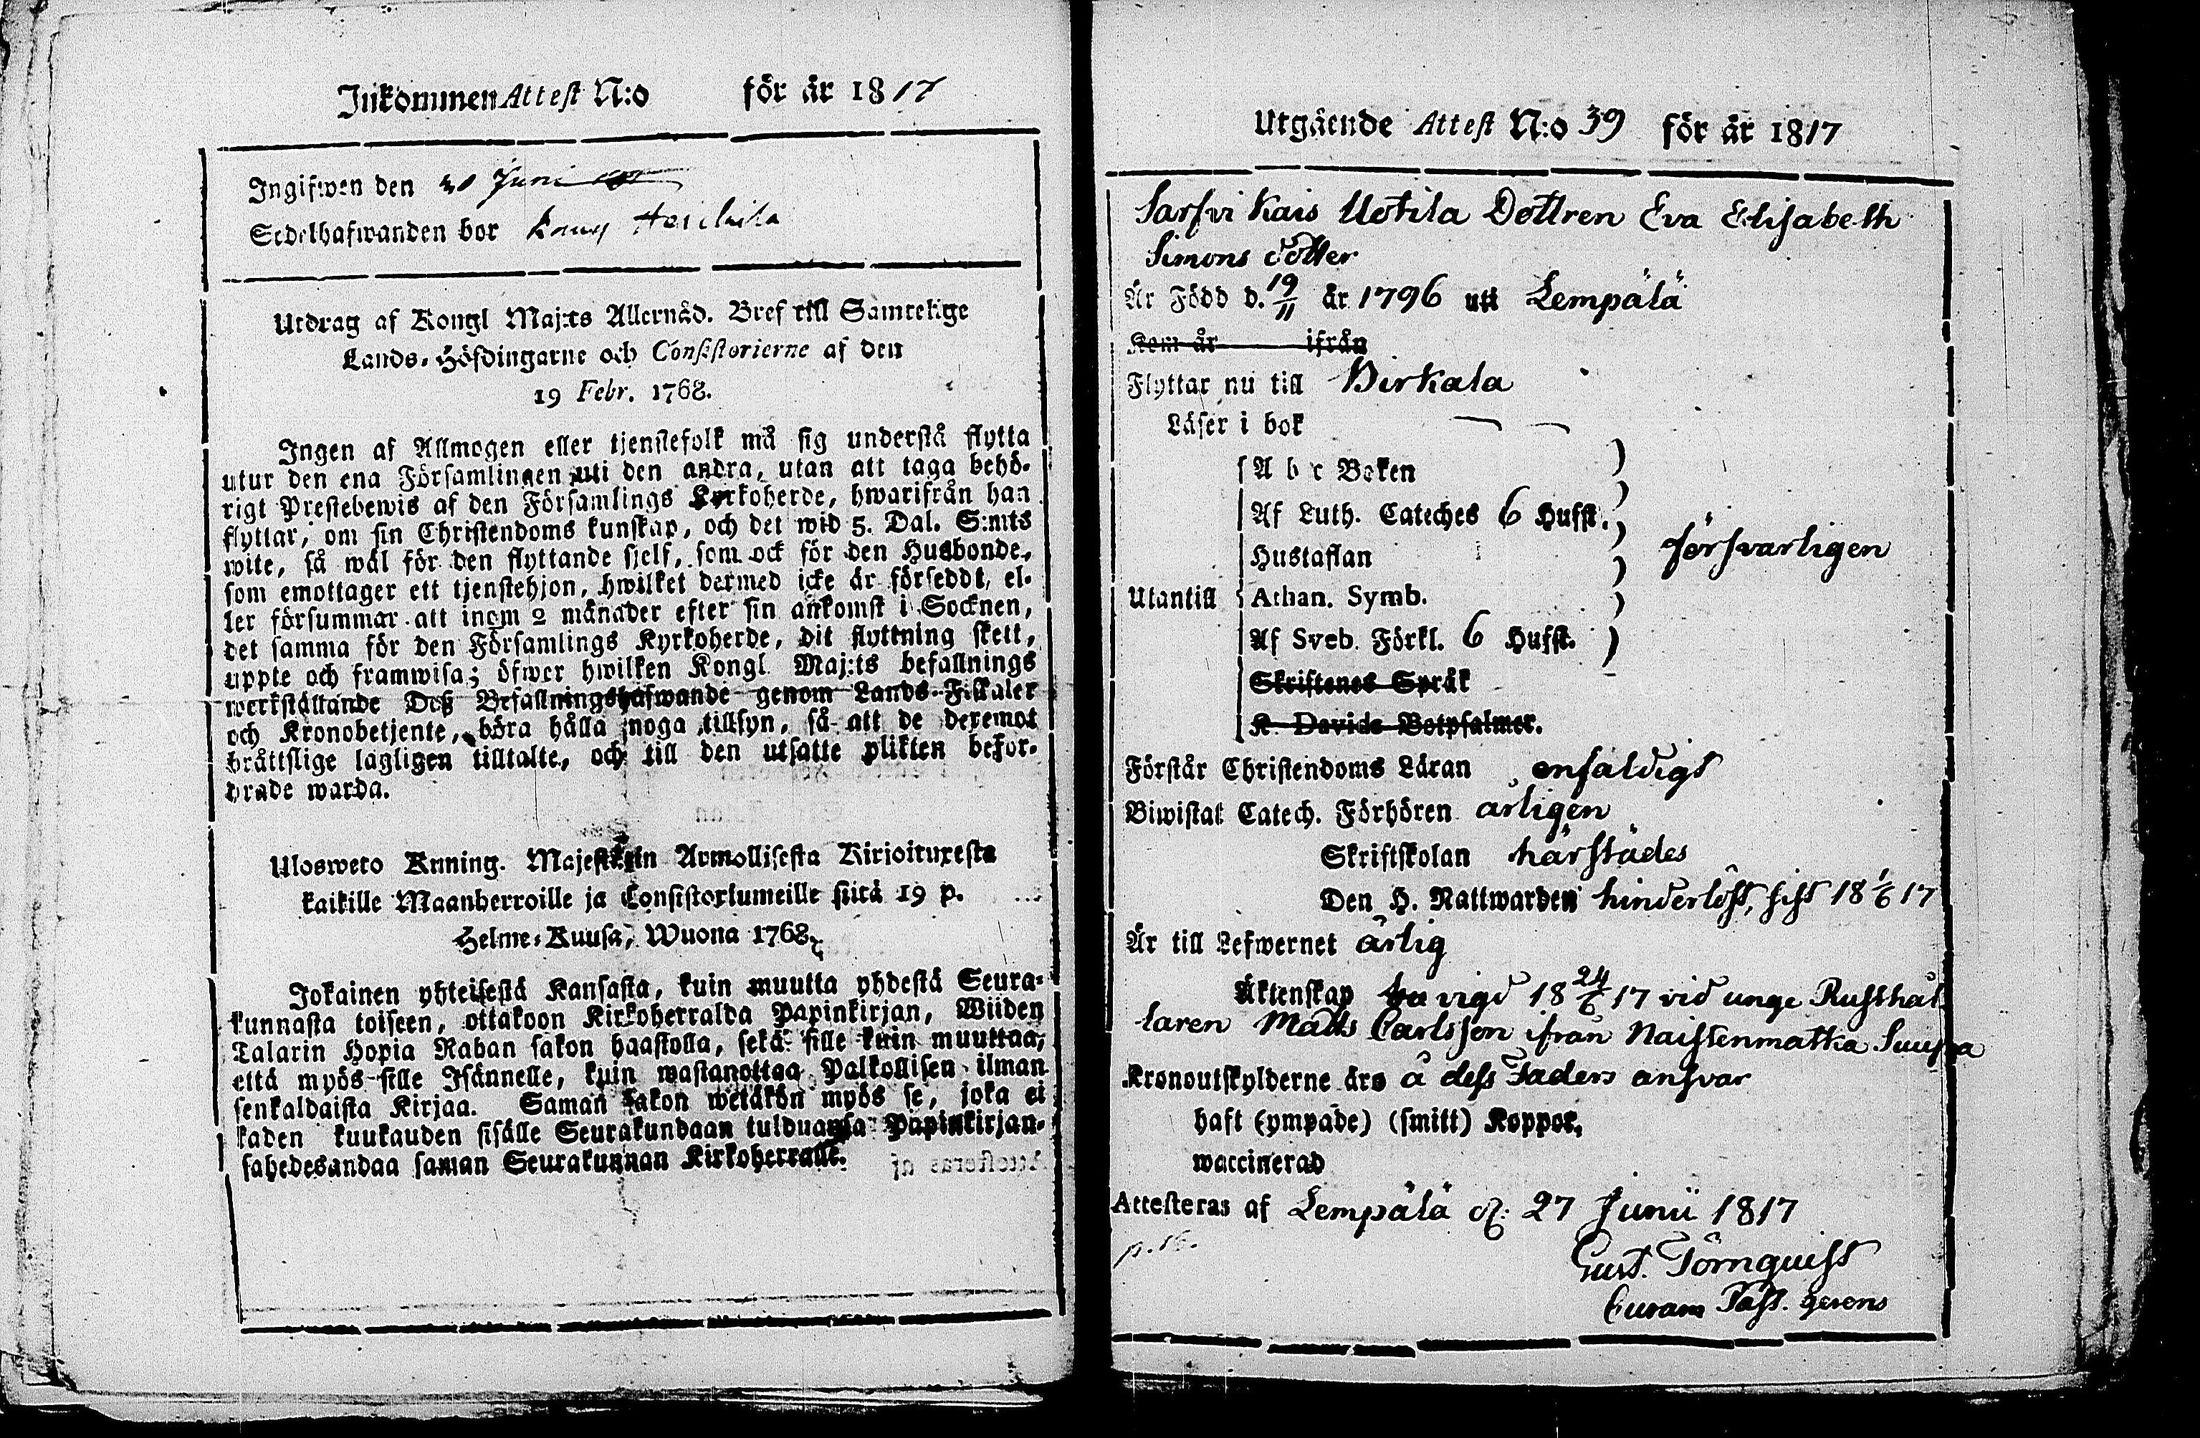 Inkommen Attest N:o för år 1817
Ingifwen den Juni
Sedelhafwanden bor
Utdrag af Kongl Maj:ts Allernåd. Bref till Samtelige
Lands-Höfdingarne och Consistorierne af den
19 Febr. 1768.
Ingen af Allmogen eller tjenstefolk må sig understå flytta
utur den ena Församlingen uti den andra, utan att taga behö-
rigt Prestebewis af den Församlings Kyrkoherde, hwarifrån han
flyttar, om sin Christendoms kunskap, och det wid 5. Dal. S:mts
wite, så wäl för den flyttande sjelf, som ock för den Husbonde,
som emottager ett tjenstehjon, hwilket dermed icke är försedt, el-
ler försummar att inom 2 månader efter sin ankomst i Socknen,
det samma för den Församlings Kyrkoherde, dit flyttning skett,
uppte och framwisa; öfwer hwilken Kongl Maj:ts befallnings
werkställande Deß Befallningshafwande genom Lands-Fiskaler
och Kronobetjente, böra hålla noga tillsyn, så att de deremot
bråttslige lagligen tilltalte, och till den utsatte plikten befor-
drade warda.
Ulosweto Kuning. Majestetin Armollisesta Kirjoituxesta
kaikille Maanherroille ja Consistoriumeille siitä 19 p.
Helme-Kuusa, Wuona 1768.
Jokainen yhteisestä Kansasta, kuin muutta yhdestä Seura-
kunnasta toiseen, ottakoon Kirkoherralda Papinkirjan, Wiiden
Talarin Hopia Rahan sakon haastolla, sekä sille kuin muuttaa,
että myös sille Isännelle, kuin wastanottaa Palkollisen ilman
senkaldaista Kirjaa. Saman sakon wetäkön myös se, joka ei
kaden kuukauden sisälle Seurakundaan tulduansa Papinkirjan-
sa hedesandaa saman Seurakunnan Kirkoherralle.
Utgående Attest N:o 39 för år 1817
Sarfvikais Uotila Dottren Eva Elisabeth
Simons dotter
Är Född d. 19/11 år 1796 uti Lempälä
Kom år ifrån
Flyttar nu till Birkala
Läser i bok
A b c Boken
Af Luth. Cateches 6 Hufst.
Hustaflan försvarligen
Utantill Athan. Symb.
Af Sveb. Förkl. 6 Hufst.
Skriftenes Språk
K. Davids Botpsalmer.
Förstår Christendoms Läran enfaldigt
Biwistat Catech. Förhören årligen
Skriftskolan härstädes
Den H. Nattwarden hinderlöst, sist 18 1/6 17
Är till Lefwernet ärlig
Äktenskap vigd 18 24/6 17 vid unge Rusthål
laren Matts Carlsson ifrån Naistenmatka Suuppa
Kronoutskylderne äro å dess Faders ansvar
haft (ympade) (smitt) Koppor,
waccinerad
Attesteras af Lempälä d. 27 Junii 1817
p. 16.
Gust. Törnquist
Curam Past. gerens